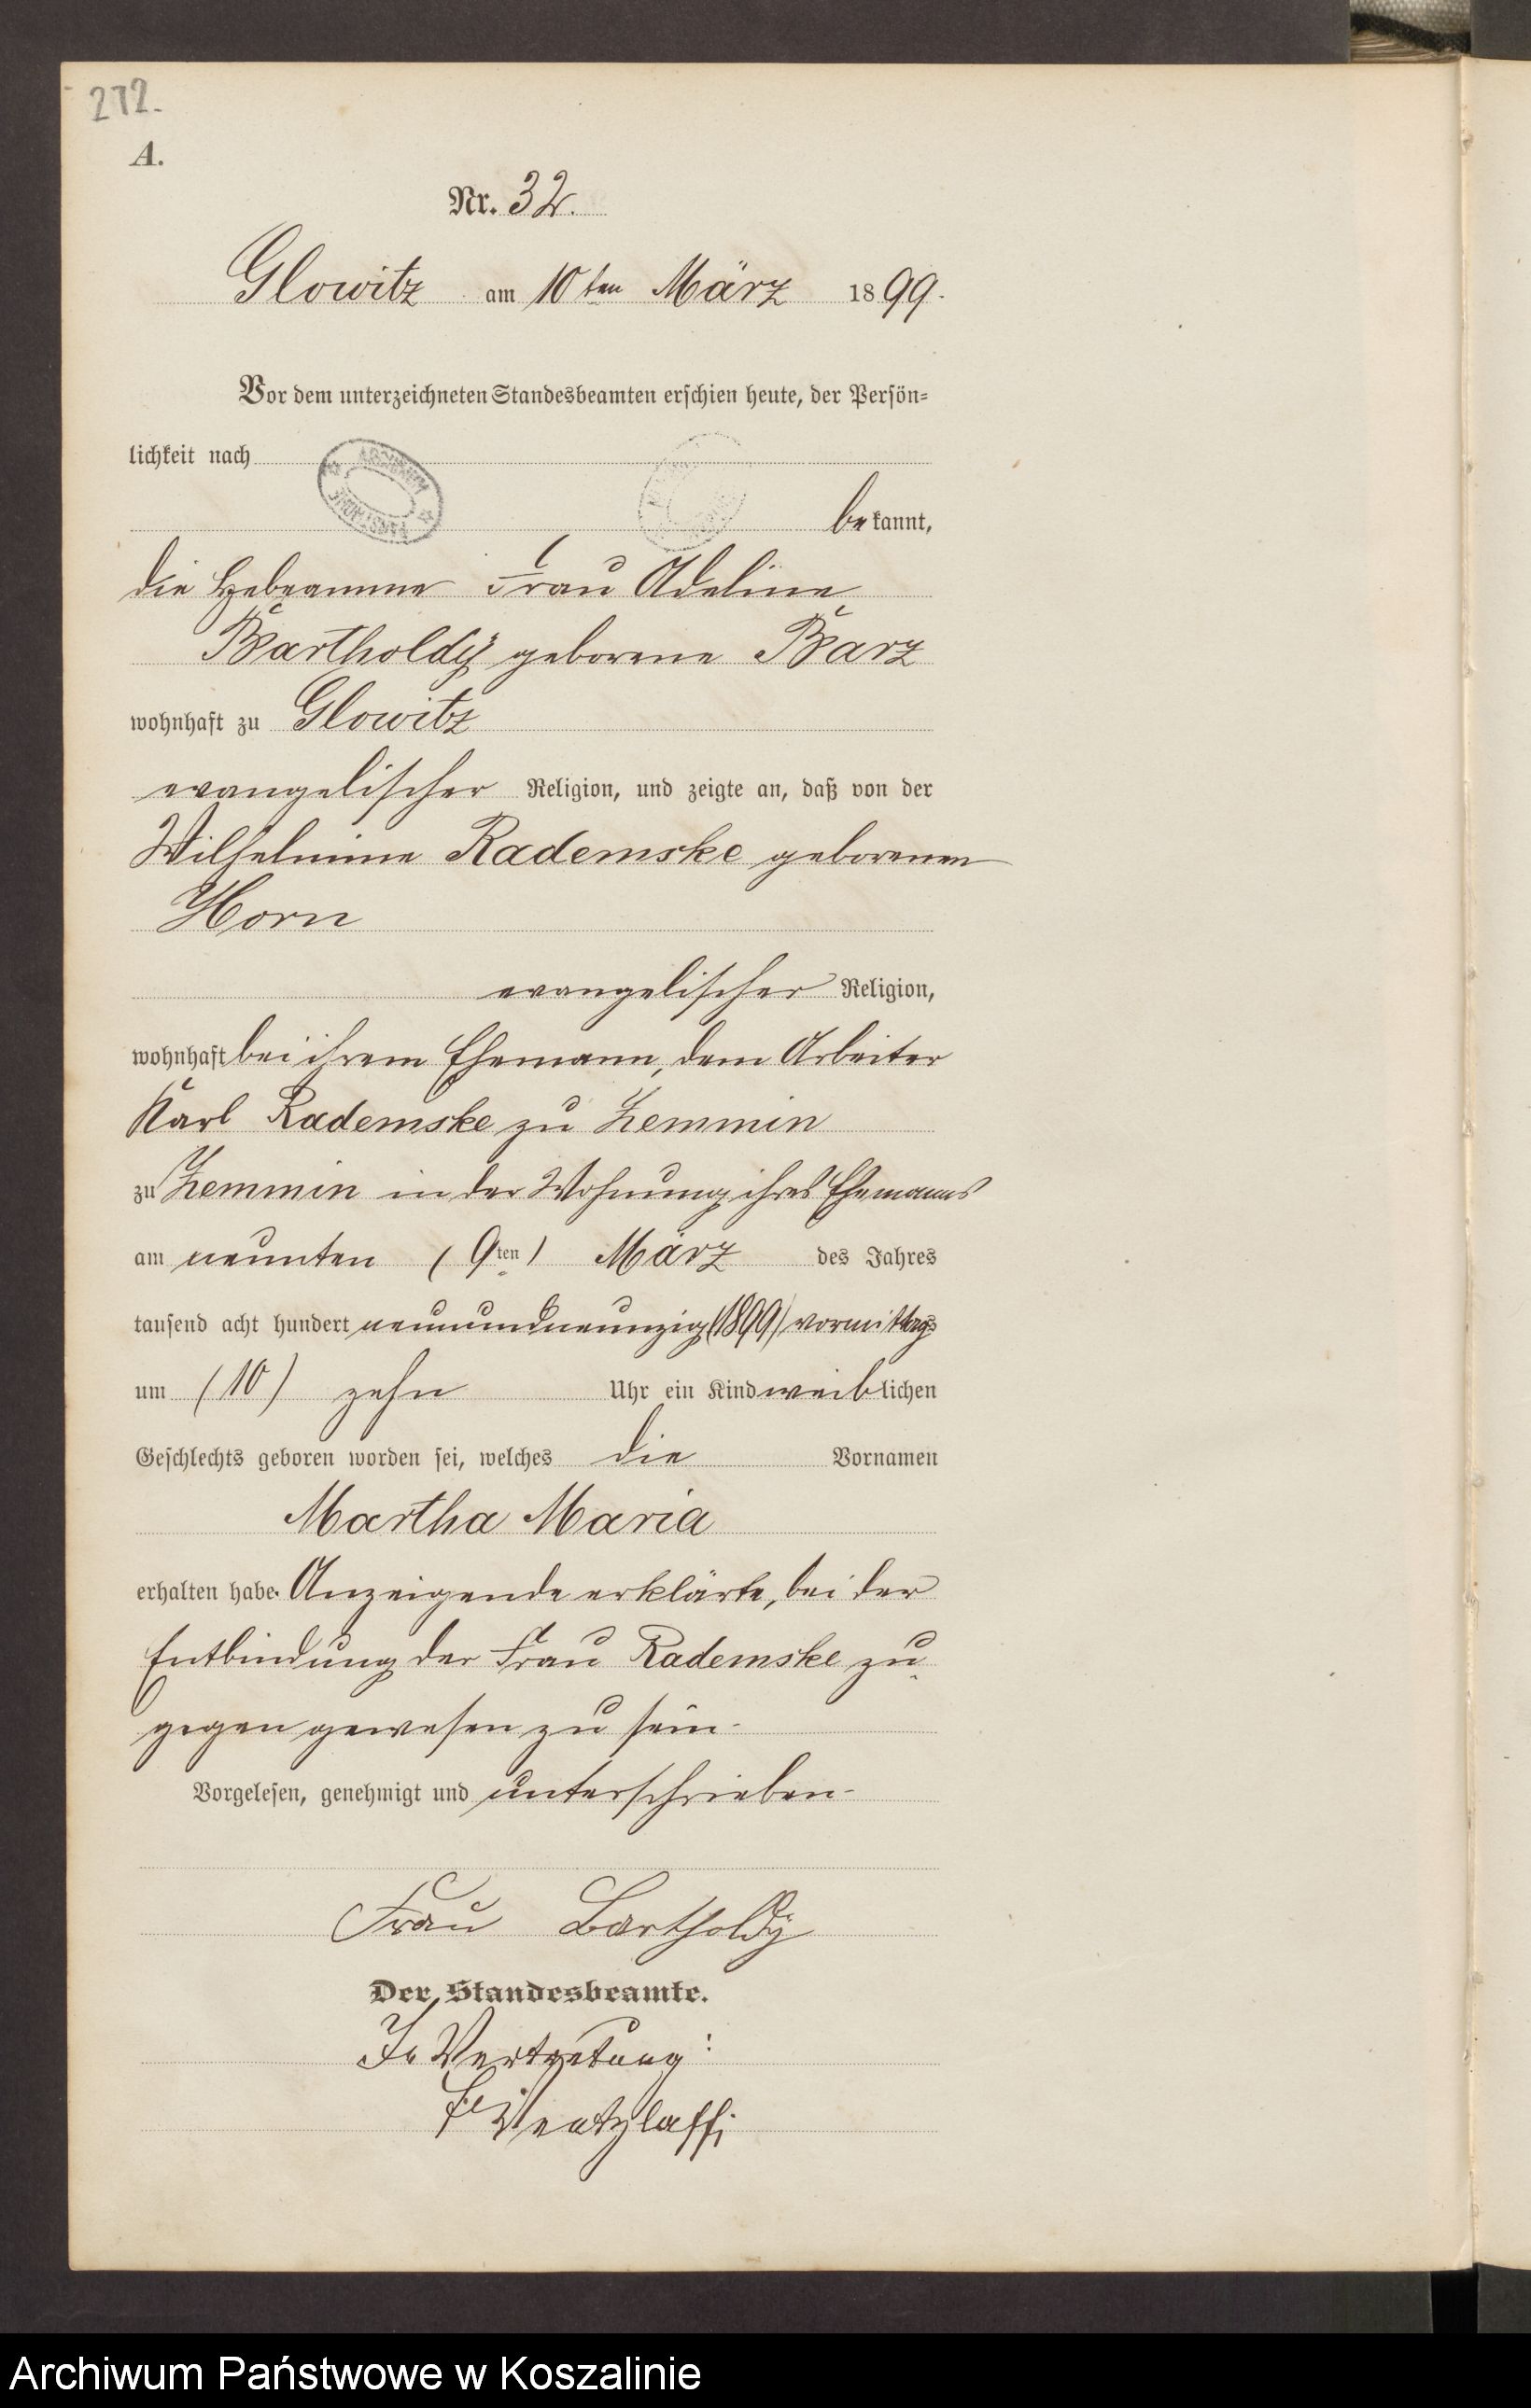 272.
A.
Nr. 32.
Glowitz am 10ten März 1899.
Vor dem unterzeichneten Standesbeamten erschien heute, der Persön-
lichkeit nach
bekannt,
die Hebeamme Frau Adeline
Bartholdÿ geborene Barz
wohnhaft zu Glowitz
evangelischer Religion, und zeigte an, daß von der
Wilhelmine Rademske geborenen
Horn
evangelischer Religion,
wohnhaft bei ihrem Ehemann, dem Arbeiter
Karl Rademske zu Zemmin
zu Zemmin in der Wohnung ihres Ehemanns
am neunten (9ten) März des Jahres
tausend acht hundert neunundneunzig (1899) vormittags
um (10) zehn Uhr ein Kind weiblichen
Geschlechts geboren worden sei, welches die Vornamen
Martha Maria
erhalten habe. Anzeigende erklärte, bei der
Entbindung der Frau Rademske zu
gegen gewesen zu sein.
Vorgelesen, genehmigt und unterschrieben.
Frau Bartholdÿ
Der Standesbeamte.
In Vertretung:
Ventzlaff
Archiwum Państwowe w Koszalinie